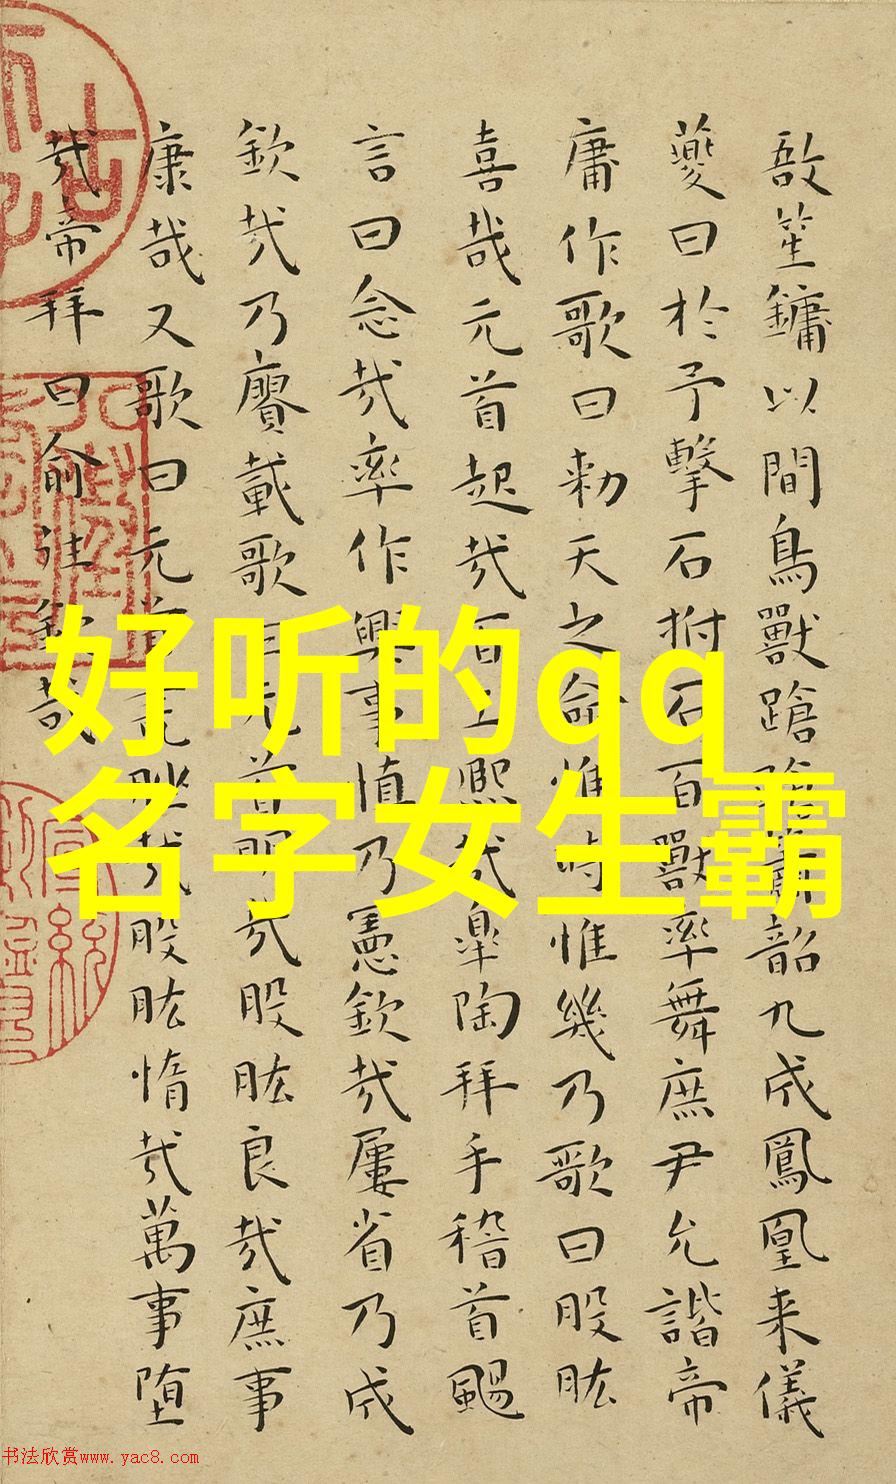 敔笙鏞以間鳥獸蹌蹌簫韶九成鳳凰来儀
夔曰於予擊石拊石百獸率舞庶尹允諧帝
庸作歌曰勑天之命惟時惟幾乃歌曰股肱
喜哉元首起哉百工熙哉臯陶拜手稽首颺
言曰念哉率作興事慎乃憲欽哉屢省乃成
欽哉乃賡載歌曰元首明哉股肱良哉庶事
康哉又歌曰元首叢脞哉股肱惰哉萬事堕
哉帝拜曰俞往欽哉
好听的qq
名字女生霸
书法欣赏www.yac8.com